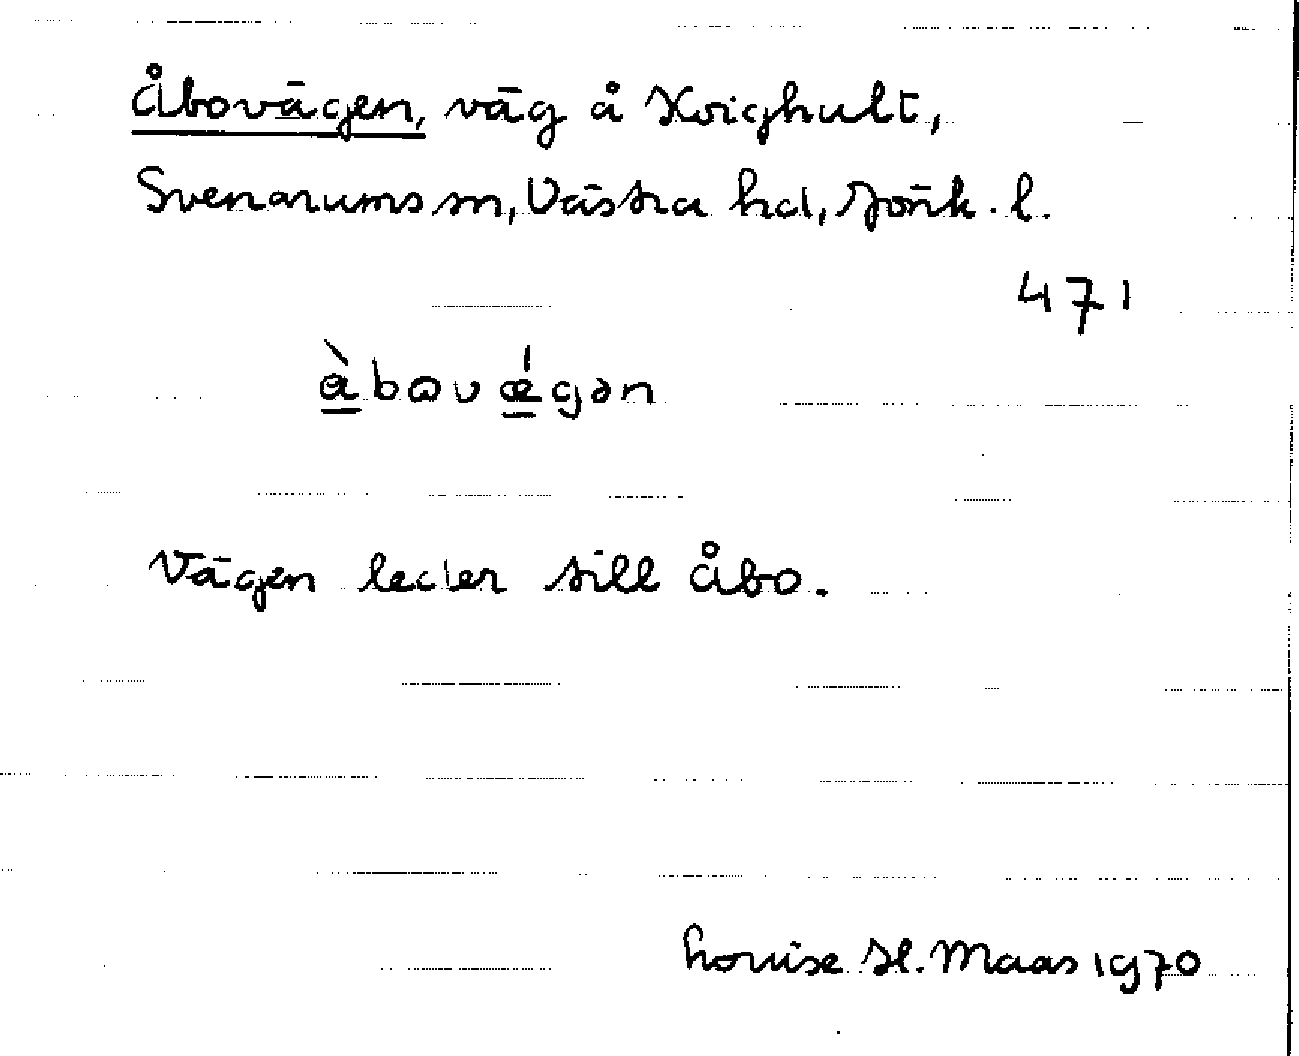 Åbovägen, väg å Krighult,
Svenarums sn, Västra hd, Jönk. l.
471
àbωvǽgən
Vägen leder till Åbo.
Louise H. Maas 1970